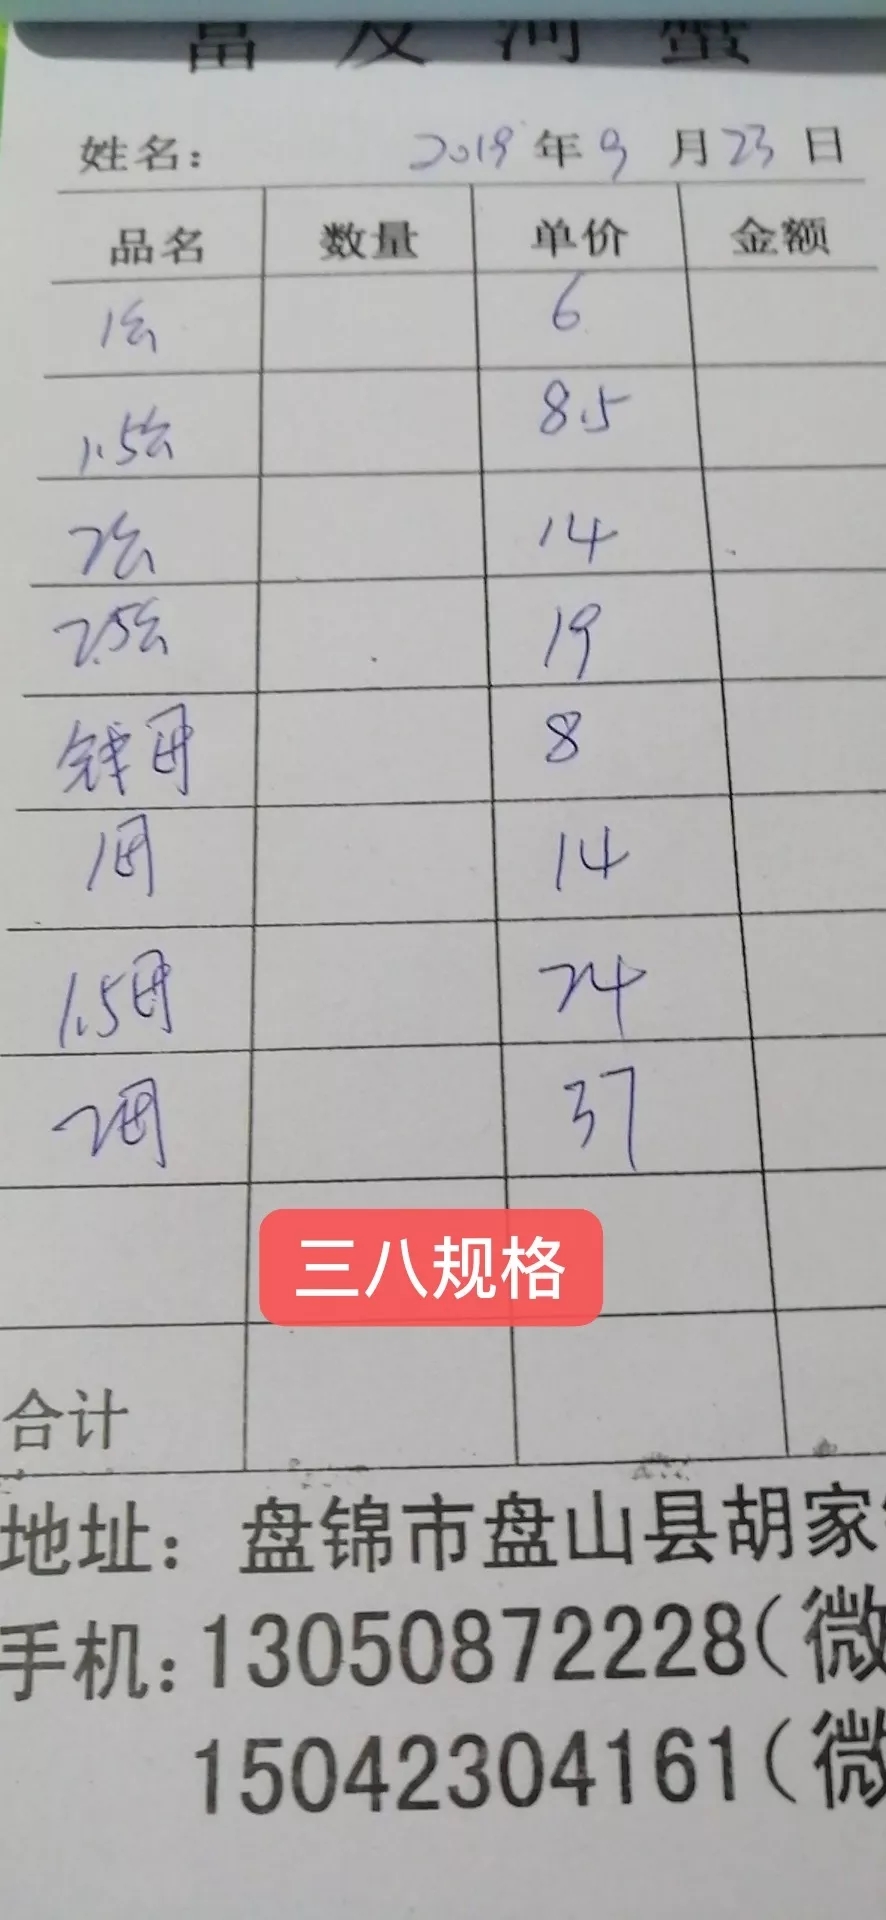 富 河 蟹
姓名: 2019 年 9 月 23 日
品名 数量 单价 金额
1公 6
1.5公 8.5
2公 14
2.5公 19
钱母 8
1母 14
1.5母 24
2母 37
三八规格
合计
地址: 盘锦市盘山县胡家
手机: 13050872228(微
15042304161(微